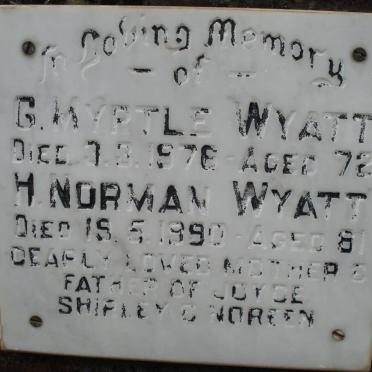 In Loving Memory
- of -
G. MYRTLE WYATT
DIED 7.3.1976 - AGED 72
H. NORMAN WYATT
DIED 15.5.1990 - AGED 81
DEARLY LOVED MOTHER &
FATHER OF JOYCE
SHIRLEY & NOREEN